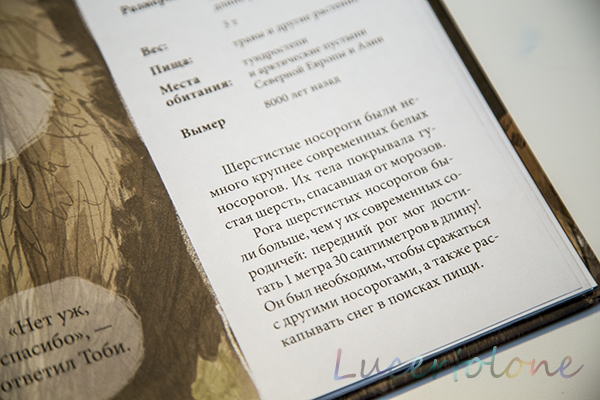 Размеры:
3 т
Вес:
трава и другие растения
Пища:
тундростепи
и арктические пустыни
Северной Европы и Азии
Места
обитания:
8000 лет назад
Вымер
Шерстистые носороги были не-
много крупнее современных белых
носорогов. Их тела покрывала гу-
стая шерсть, спасавшая от морозов.
Рога шерстистых носорогов бы-
ли больше, чем у их современных со-
родичей: передний рог мог дости-
гать 1 метра 30 сантиметров в длину!
Он был необходим, чтобы сражаться
с другими носорогами, а также рас-
капывать снег в поисках пищи.
«Нет уж,
спасибо», —
ответил Тоби.